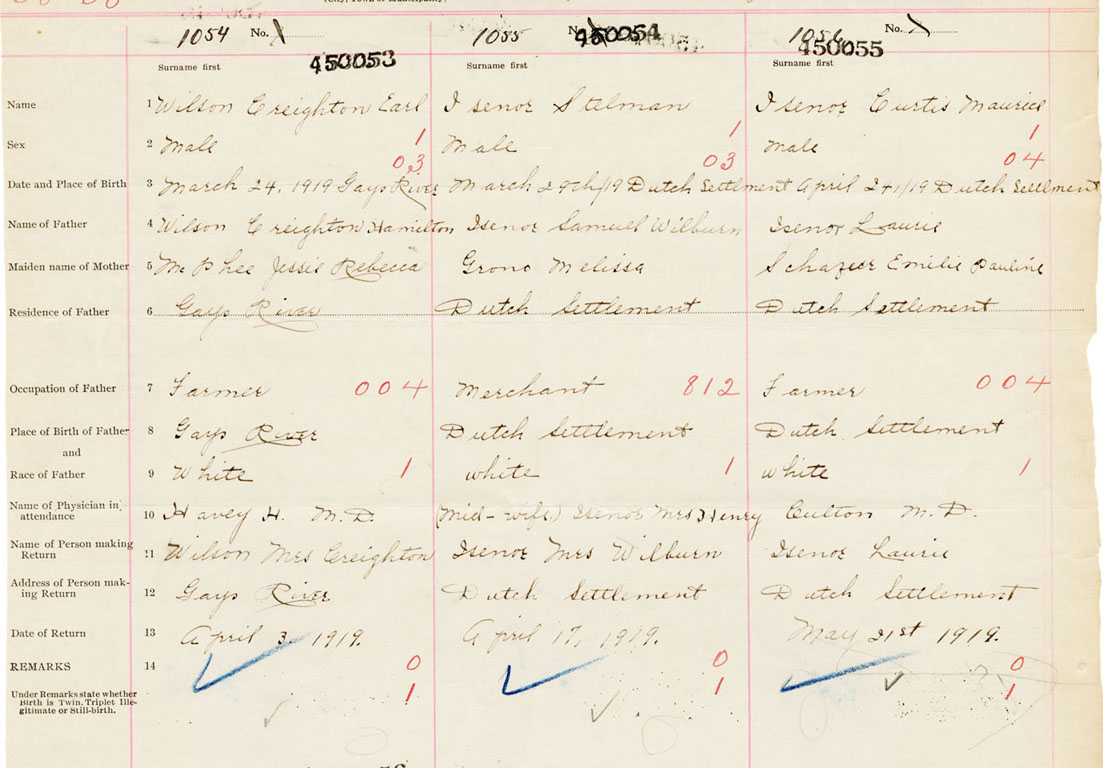 (City, Town or Municipality)
1054 No. 1055 No. 1056 No.
450053 450054 450055
Surname first Surname first Surname first
Name 1 Wilson Creighton Earl Isenor Stelman Isenor Curtis Maurice
1 1 1
Sex 2 Male Male Male
03 03 04
Date and Place of Birth 3 March 24, 1919 Gays River March 29th/19 Dutch Settlment April 24/19 Dutch Settlment
Name of Father 4 Wilson Creighton Hamilton Isenor Samuel Wilburn Isenor Laurie
Maiden name of Mother 5 McPhee Jessie Rebecca Grono Melissa Emilie Pauline
Residence of Father 6 Gays River Dutch Settlement Dutch Settlement
Occupation of Father 7 Farmer 004 Merchant 812 Farmer 004
Place of Birth of Father 8 Gays River Dutch Settlement Dutch Settlement
and
Race of Father 9 White 1 white 1 white 1
Name of Physician in
attendance 10 Havey H. M.D. (Mid-wife) Isenor Mrs Henry Culton M.D.
Name of Person making
Return 11 Wilson Mrs Creighton Isenor Mrs Wilburn Isenor Laurie
Address of Person mak-
ing Return 12 Gays River Dutch Settlement Dutch Settlement
Date of Return 13 April 3, 1919. April 17, 1919. May 21st 1919.
REMARKS 14 0 0 0
Under Remarks state whether
Birth is Twin, Triplet Ille-
gitimate or Still-birth.
1 1 1